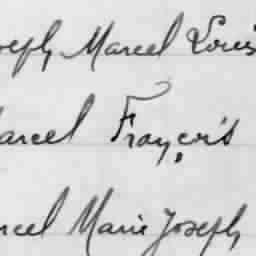 Joseph Marcel Louis
Marcel François
Marcel Marie Joseph